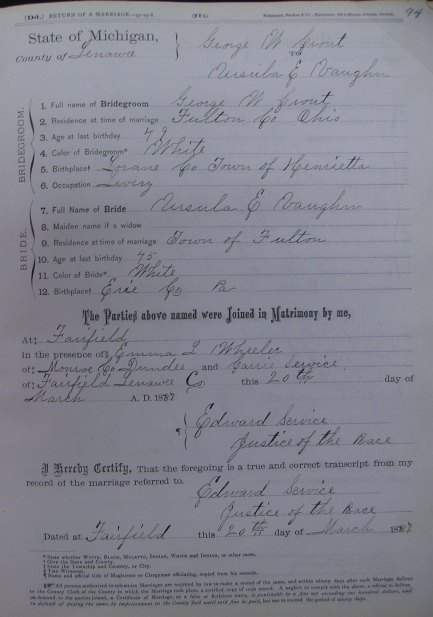 [D4.] RETURN OF A MARRIAGE
94
State of Michigan,
County of Lenawee
George W Front
TO
Ursula E Vaughn
BRIDEGROOM.
1. Full name of Bridegroom George W Front
2. Residence at time of marriage Fulton Co Ohio
3. Age at last birthday 49
4. Color of Bridegroom* White
5. Birthplace† Lorane Co Town of Henrietta
6. Occupation Livery
BRIDE.
7. Full Name of Bride Ursula E Vaughn
8. Maiden name if a widow
9. Residence at time of marriage Town of Fulton
10. Age at last birthday 45
11. Color of Bride* White
12. Birthplace† Erie Co Pa
The Parties above named were Joined in Matrimony by me,
At‡ Fairfield
in the presence of§ Emma L Wheeler
of‡ Monroe Co Dundee and Carrie Service
of‡ Fairfield Lenawee Co this 20th day of
March A. D. 1887
Edward Service
Justice of the Peace
I Hereby Certify, That the foregoing is a true and correct transcript from my
record of the marriage referred to.
Edward Service
Justice of the Peace
Dated at Fairfield this 20th day of March 1887
* State whether WHITE, BLACK, MULATTO, INDIAN, WHITE and INDIAN, or other races.
† Give the State and County.
‡ State the Township and County, or City.
§ Two Witnesses.
¶ Name and official title of Magistrate or Clergyman officiating, copied from his records.
All persons authorized to solemnize Marriages are required by law to make a record of the same, and within ninety days after such Marriage, deliver
to the County Clerk of the County in which the Marriage took place, a certified copy of such record. A neglect to comply with the above, a refusal to deliver,
on demand to the parties joined, a Certificate of Marriage, or a false or fictitious entry, is punishable by a fine not exceeding one hundred dollars, and
in default of paying the same, by imprisonment in the County jail until said fine be paid, but not to exceed the period of ninety days.